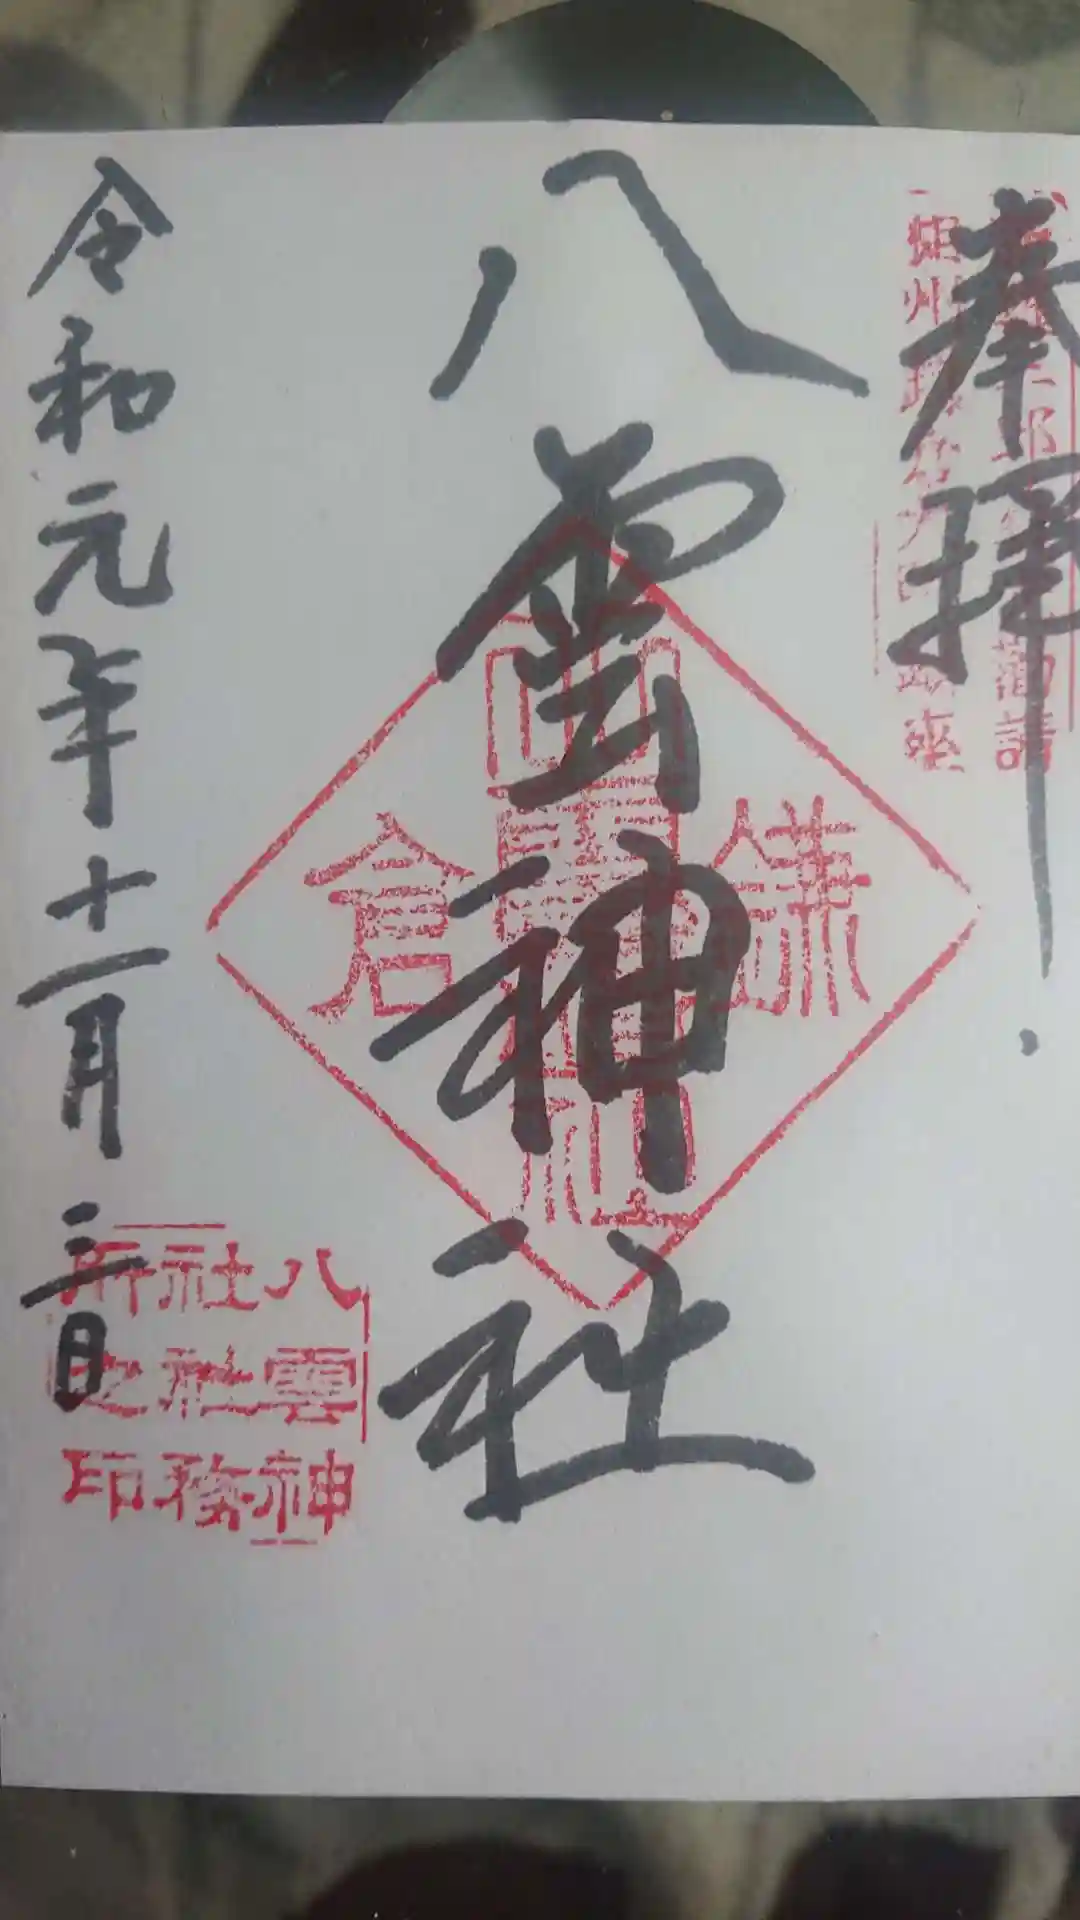 奉拝
勧請
八雲神社
鎌倉
山
神社
令和元年十一月三日
八雲神
社社務
所之印